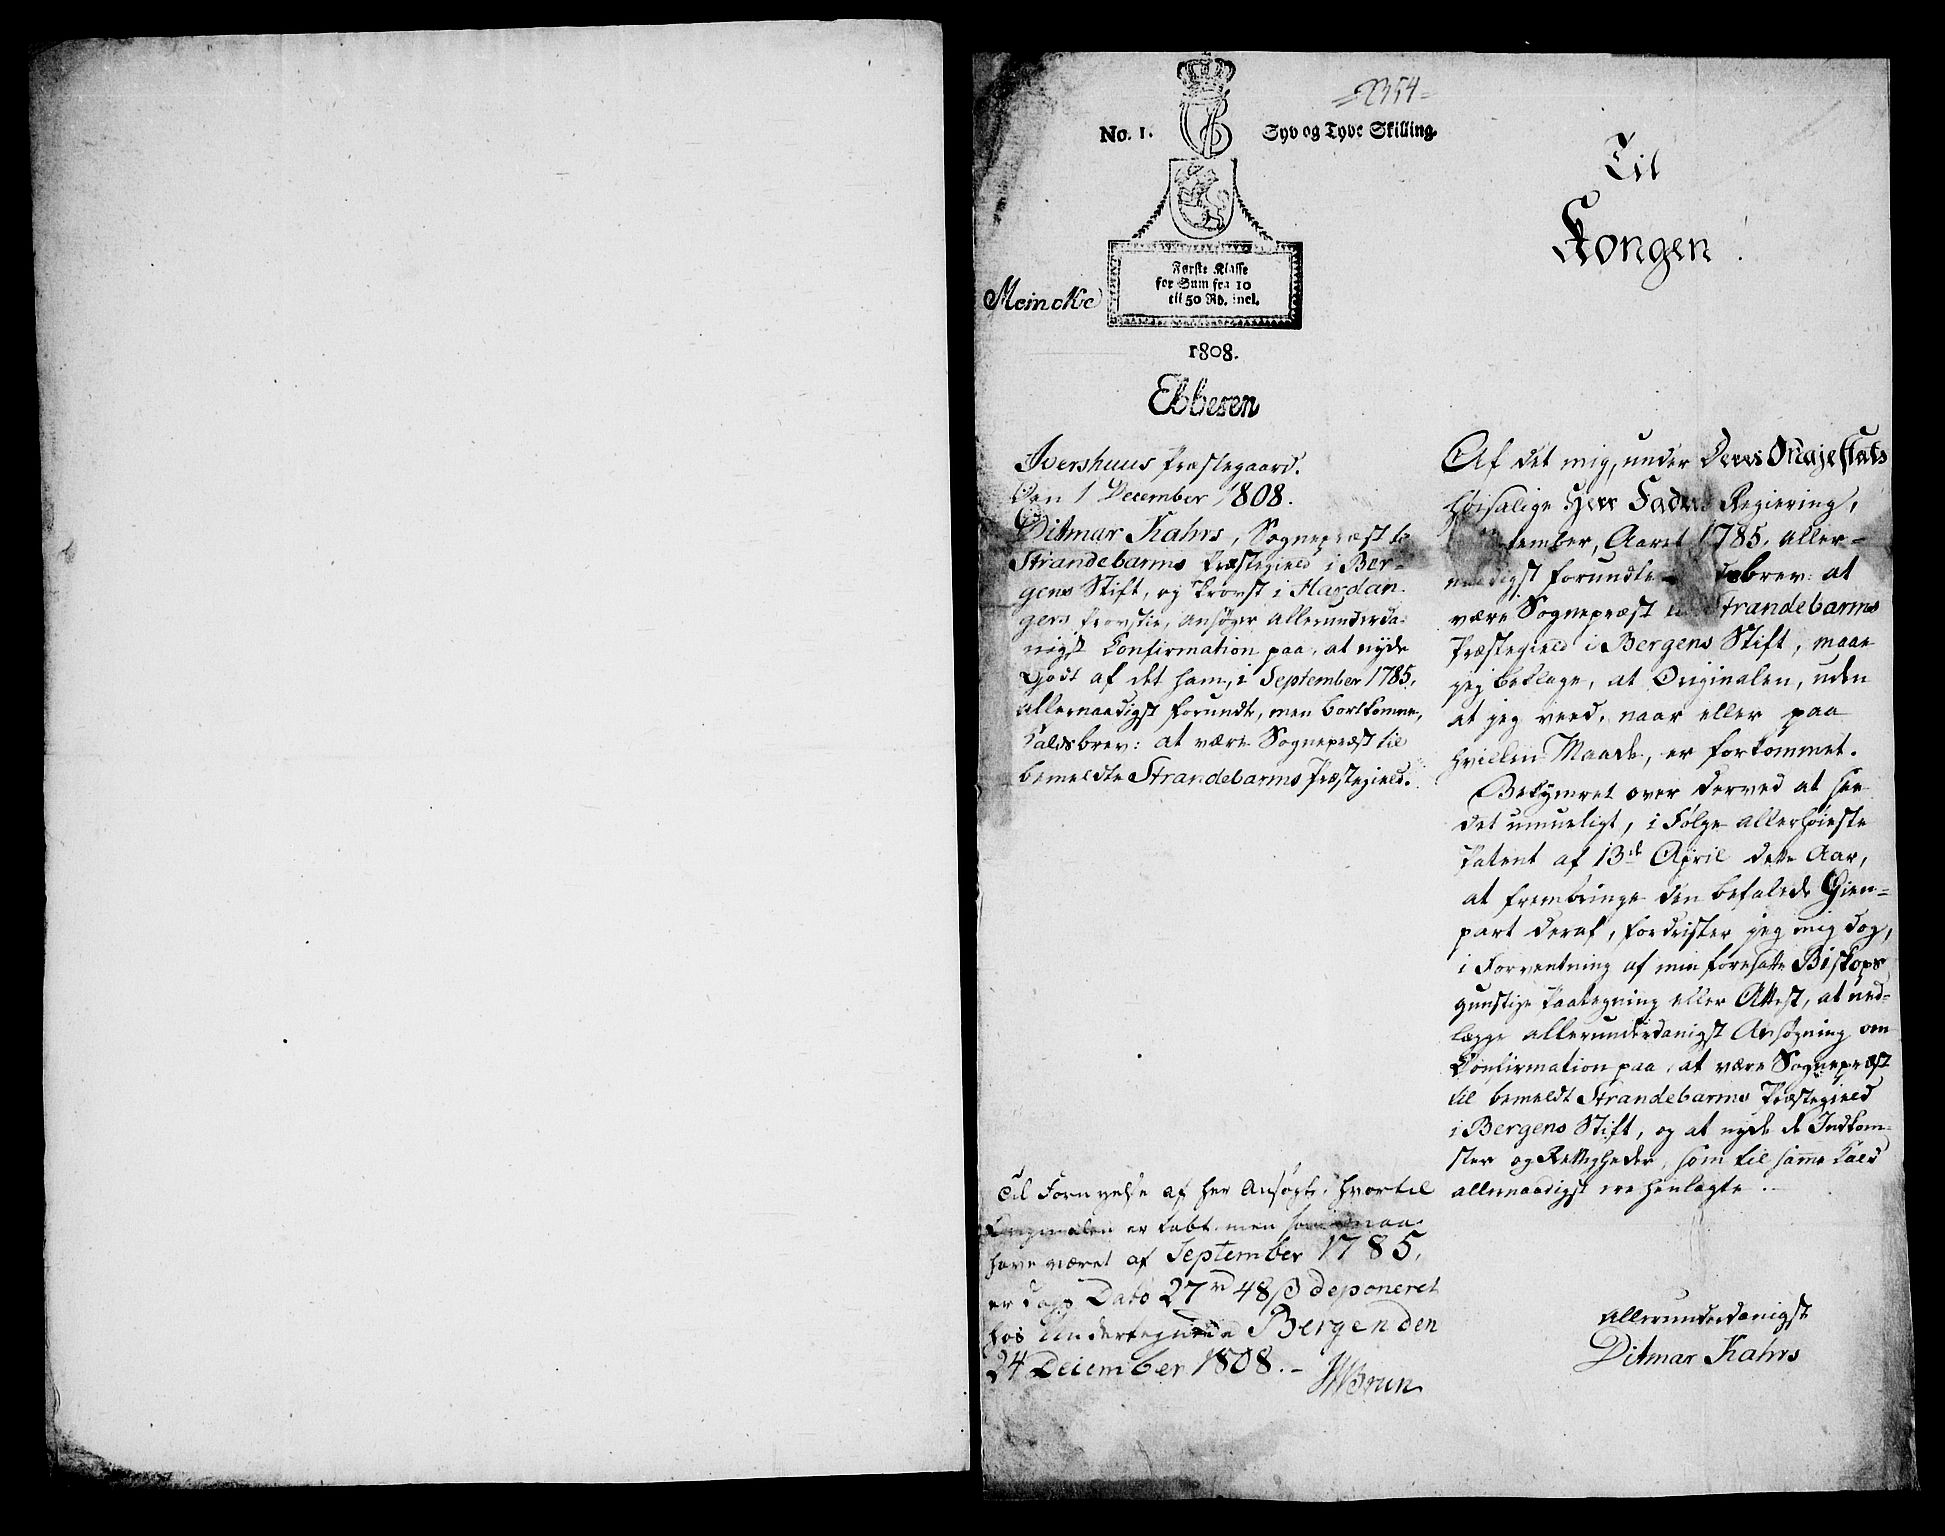 =2354=
No. 1.
Syv og Tyve Skilling.
Første Klasse
for Sum fra 10
til 50 Rd. incl.
Meincke
1808.
Ebbesen
Ivershuus Præstegaard.
Den 1 December 1808.
Ditmar Kahrs, Sognepræst to
Strandebarms Præstegield i Ber-
gens Stift, og Provst i Hardan-
gers Provstie, ansøger allerunderda-
nigst Confirmation paa, at nyde
Godt af det ham, i September 1785,
allernaadigst forundte, men bortkomne,
Kaldsbrev: at være Sognepræst til
bemeldte Strandebarms Præstegield.
Til Fornyelse af her Ansøgte, hvortil
Originalen er tabt men maa
have været af September 1785,
er dags Dato 27 rd 48 ß deponeret
hos Undertegnede Bergen den
24 December 1808. - JNBrun
Til
Kongen.
Af det mig, under Deres Majestæts
høisalige Herr Faders Regiering,
tember, Aaret 1785, aller-
naadigst forundte brev: at
være Sognepræst til Strandebarms
Præstegield i Bergens Stift, maae
jeg beklage, at Originalen, uden
at jeg veed, naar eller paa
hvilken Maade, er forkommet.
Bekymret over derved at see
det umueligt, i Følge allerhøieste
Patent af 13de April dette Aar,
at frembringe den befalede Gien-
part deraf, fordrister jeg mig dog,
i Forventning af min foresatte Biskops
gunstige Paategning eller Attest, at ned-
lægge allerunderdanigst Ansøgning om
Confirmation paa, at være Sognepræst
til bemeldt Strandebarms Præstegield
i Bergens Stift, og at nyde de Indkom-
ster og Rettigheder, som til samme Kald
allernaadigst ere henlagte.
Allerunderdanigst
Ditmar Kahrs